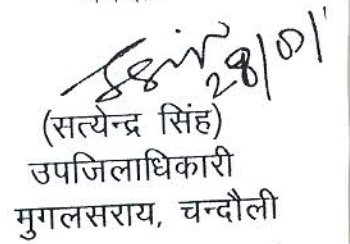 28/01/
(सत्येन्द्र सिंह)
उपजिलाधिकारी
मुगलसराय, चन्दौली